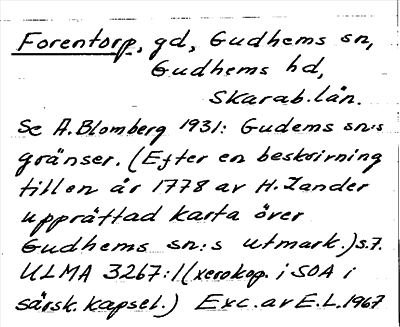 Forentorp, gd, Gudhems sn,
Gudhems hd,
Skarab.län.
Se A.Blomberg 1931: Gudems sn:s
gränser. (Efter en beskrivning
till en år 1778 av H. Zander
upprättad karta över
Gudhems sn:s utmark.) s.7.
ULMA 3267:1 (xerokop. i SOA i
särsk. kapsel.) Exc. av E.L. 1967